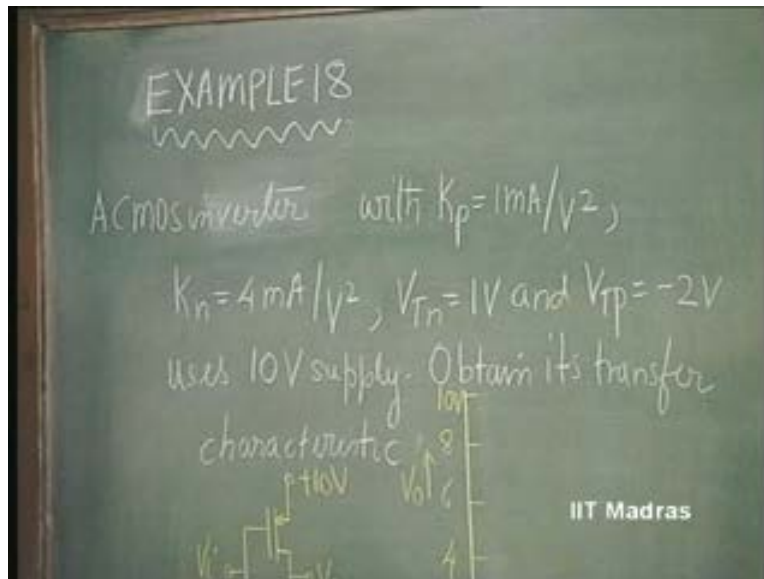 EXAMPLE 18
A CMOS inverter with Kp = 1mA/V²,
Kn = 4mA/V², VTn = 1V and VTp = -2V
uses 10V supply. Obtain its transfer
characteristic.
10V
8
+10V
Vo
6
IIT Madras
4
Vi
V